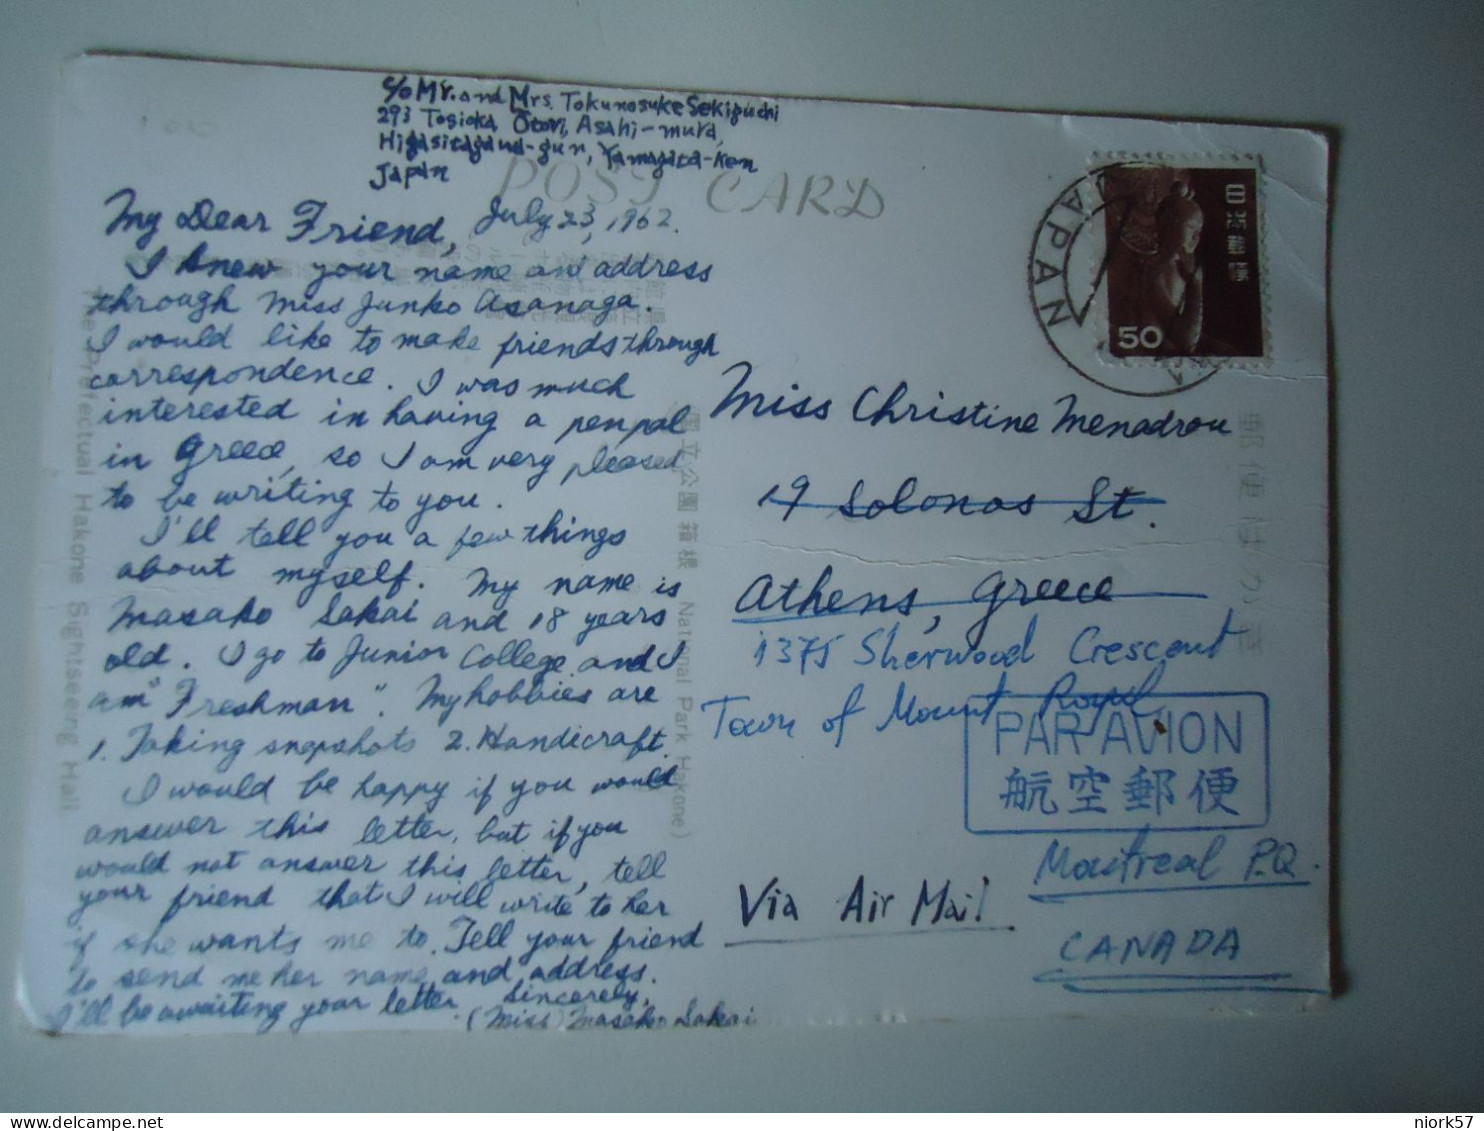 c/o Mr. and Mrs. Tokunosuke Sekiguchi
293 Tosioka, Otori, Asahi-mura,
Higasitagawa-gun, Yamagata-ken
Japan
POST CARD
July 23, 1962.
My Dear Friend,
I knew your name and address
through Miss Junko Asanaga.
I would like to make friends through
correspondence. I was much
interested in having a penpal
in Greece, so I am very pleased
to be writing to you.
I'll tell you a few things
about myself. My name is
Masako Sakai and 18 years
old. I go to Junior College and I
am "Freshman". My hobbies are
1. Taking snapshots 2. Handicraft.
I would be happy if you would
answer this letter, but if you
would not answer this letter, tell
your friend that I will write to her
if she wants me to. Tell your friend
to send me her name and address.
I'll be awaiting your letter.
Sincerely,
(Miss) Masako Sakai
The Prefectual Hakone Sightseeing Hall
(国立公園 箱根 National Park Hakone)
JAPAN
日本郵便
50
郵便はがき
Miss Christine Menadrou
19 Solonos St.
Athens, Greece
1375 Sherwood Crescent
Town of Mount Royal
PAR AVION
航空郵便
Montreal P.Q.
CANADA
Via Air Mail
delcampe.net
niork57